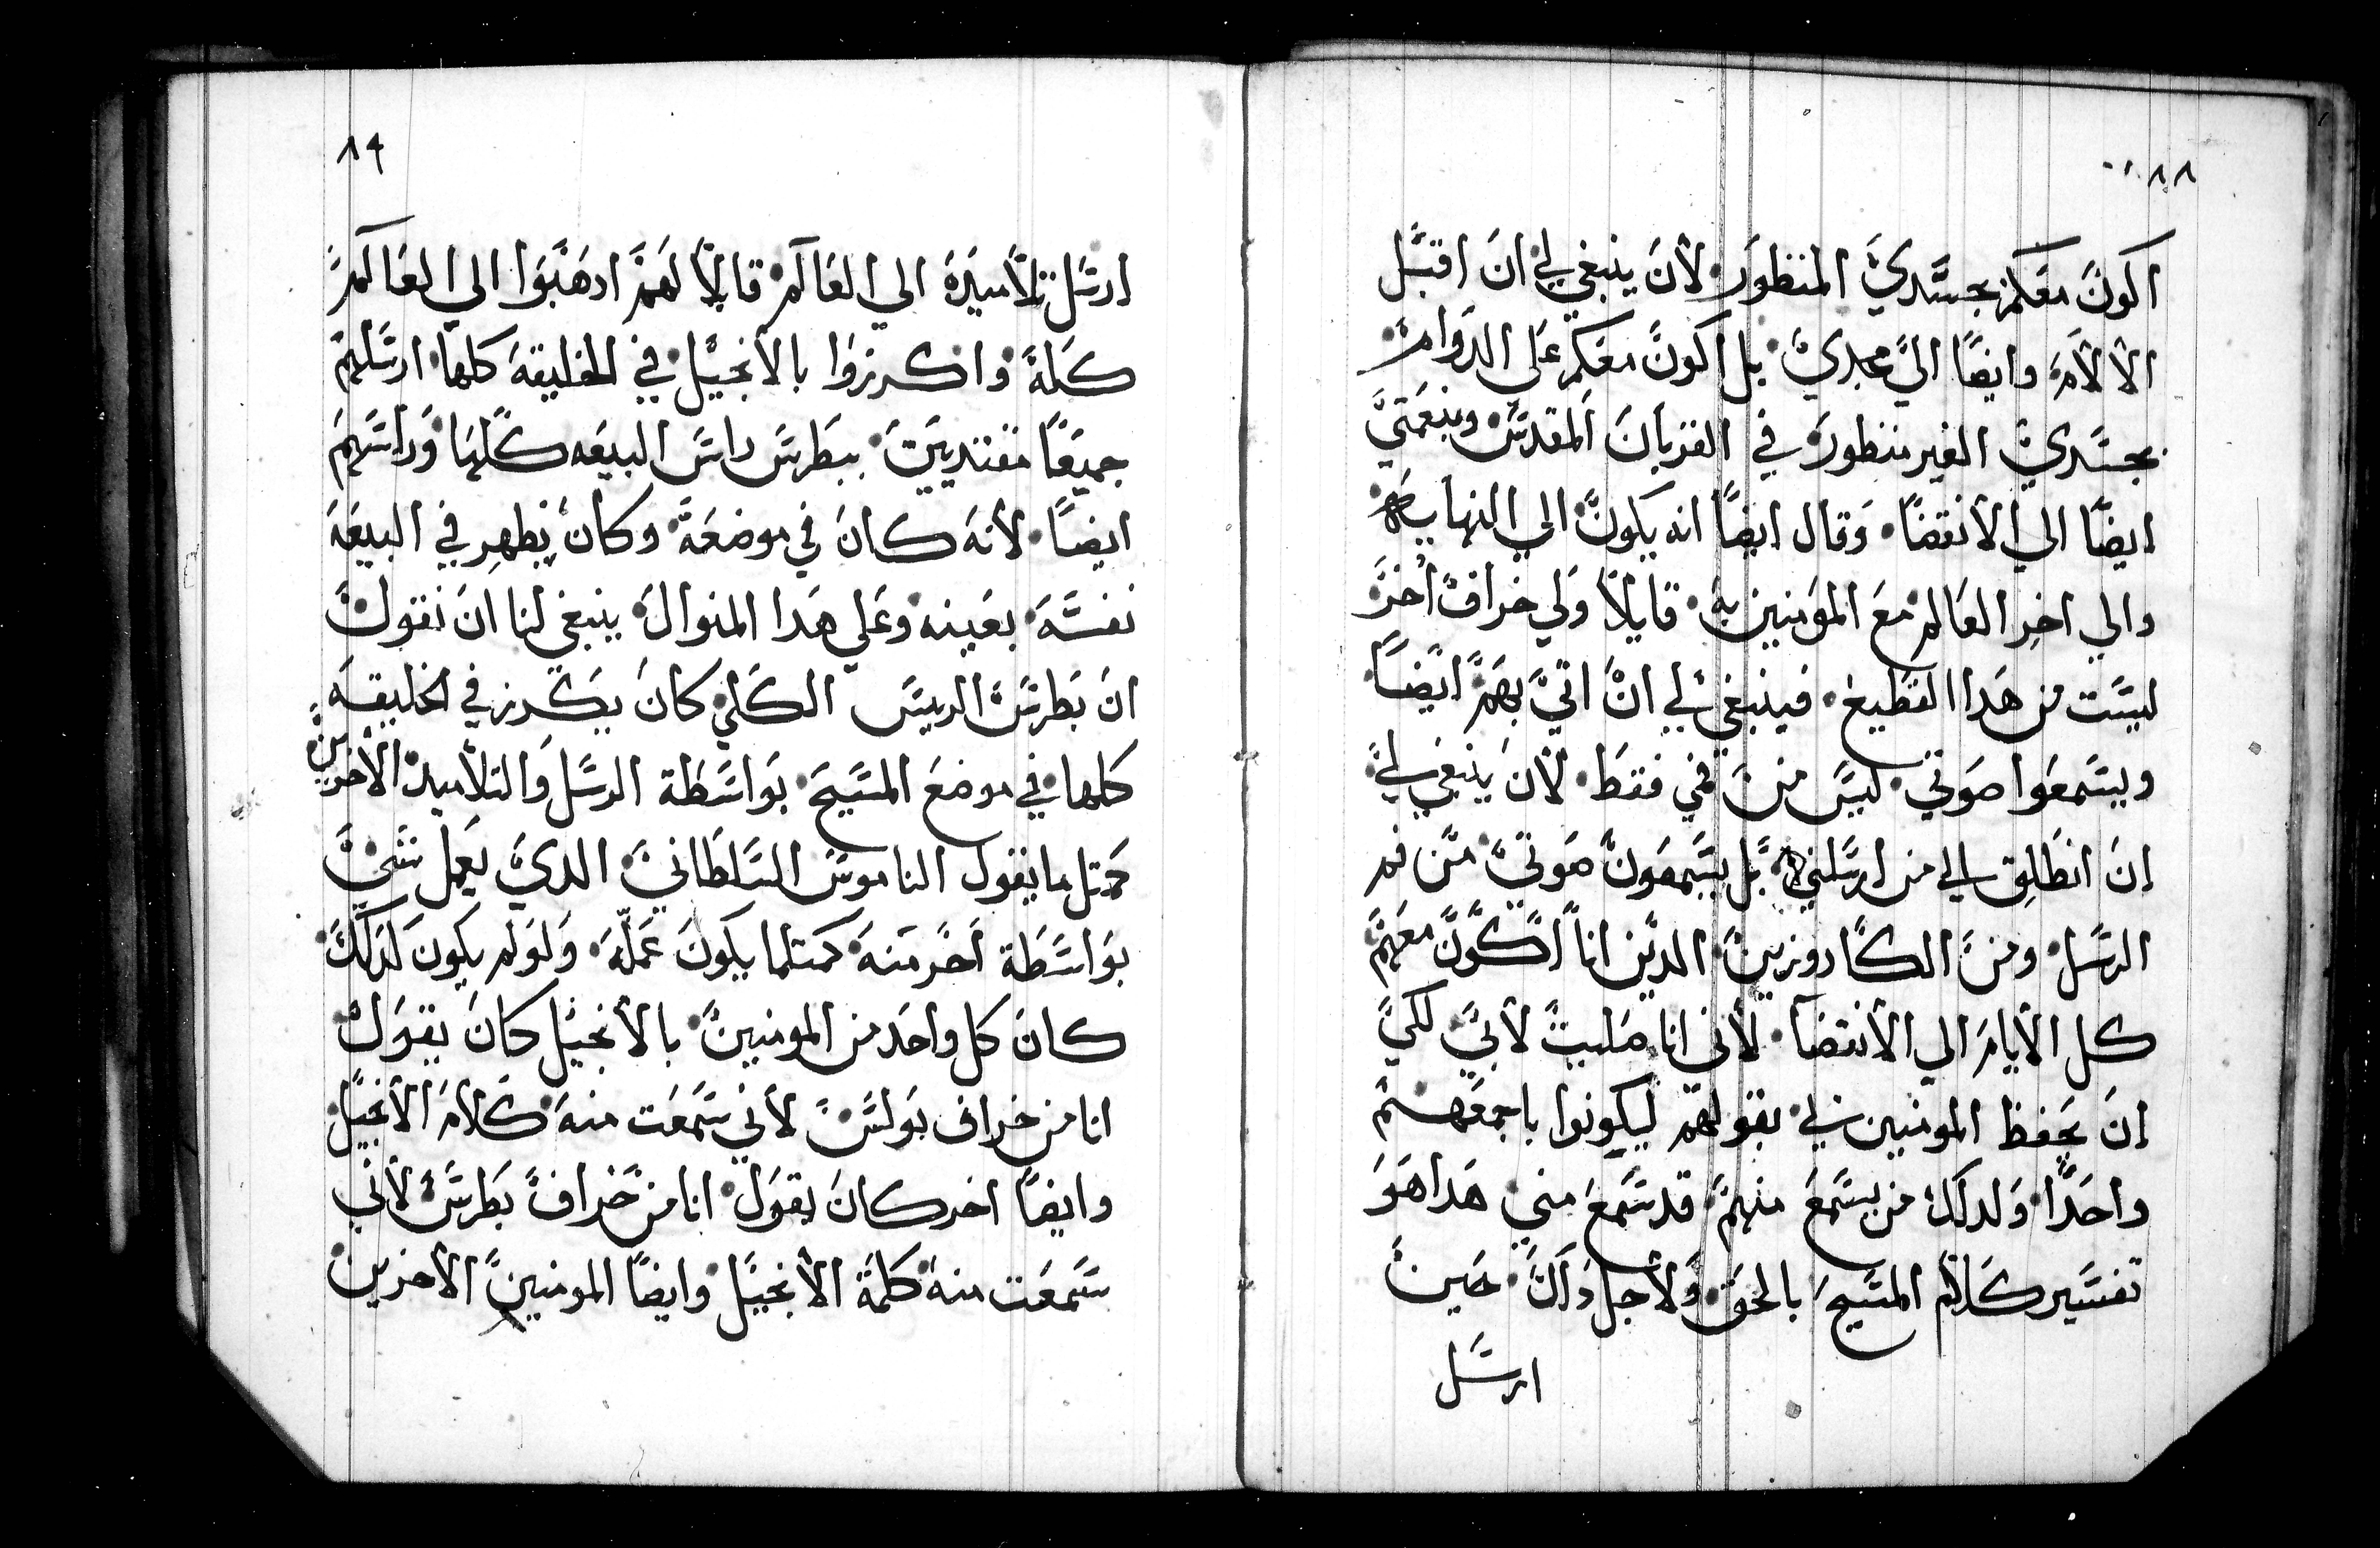 ٨٨
اكون معكم بجسدي المنظور لأن ينبغي لي ان اقبل
الألام وايضًا الي مجدي بل اكون معكم علي الدوام
بجسدي الغير منظور في القربان المقدس وبنعمتي
ايضًا الي الأنقضا وقال ايضًا انه يكون الي النهاية
والي اخر العالم مع المومنين به قايلاً ولي خراف اخر
ليست من هدا القطيع فينبغي لي ان اتي بهم ايضًا
ويسمعوا صوتي ليس من فمي فقط لأن ينبغي لي
ان انطلق الي من ارسلني بل يسمعون صوتي من فم
الرسل ومن الكاروزين الدين انا اكون معهم
كل الأيام الي الأنقضا لأني انا صليت لأبي لكي
ان يحفظ المومنين بي بقولهم ليكونوا باجمعهم
واحدًا ولدلك من يسمع منهم قد سمع مني هدا هو
تفسير كلام المسيح بالحق ولأجل داك حين
ارسل
٨٩
ارسل تلاميده الي العالم قايلاً لهم ادهبوا الي العالم
كله واكرزوا بالأنجيل في الخليقة كلها ارسلهم
جميعًا مقتديين ببطرس راس البيعه كلها وراسهم
ايضًا لأنه كان في موضعه وكان يظهر في البيعة
نفسه بعينه وعلي هدا المنوال ينبغي لنا ان نقول
ان بطرس الرييس الكلي كان يكرز في الخليقه
كلها في موضع المسيح بواسطة الرسل والتلاميد الأخرين
كمتل ما يقول الناموس السلطاني الدي يعمل شي
بواسطة اخر منه كمتلما يكون عمله ولو لم يكون لدلك
كان كل واحد من المومنين بالأنجيل كان يقول
انا من خراف بولس لأني سمعت منه كلام الأنجيل
وايضًا اخر كان يقول انا من خراف بطرس لأني
سمعت منه كلمة الأنجيل وايضًا المومنين الأخرين